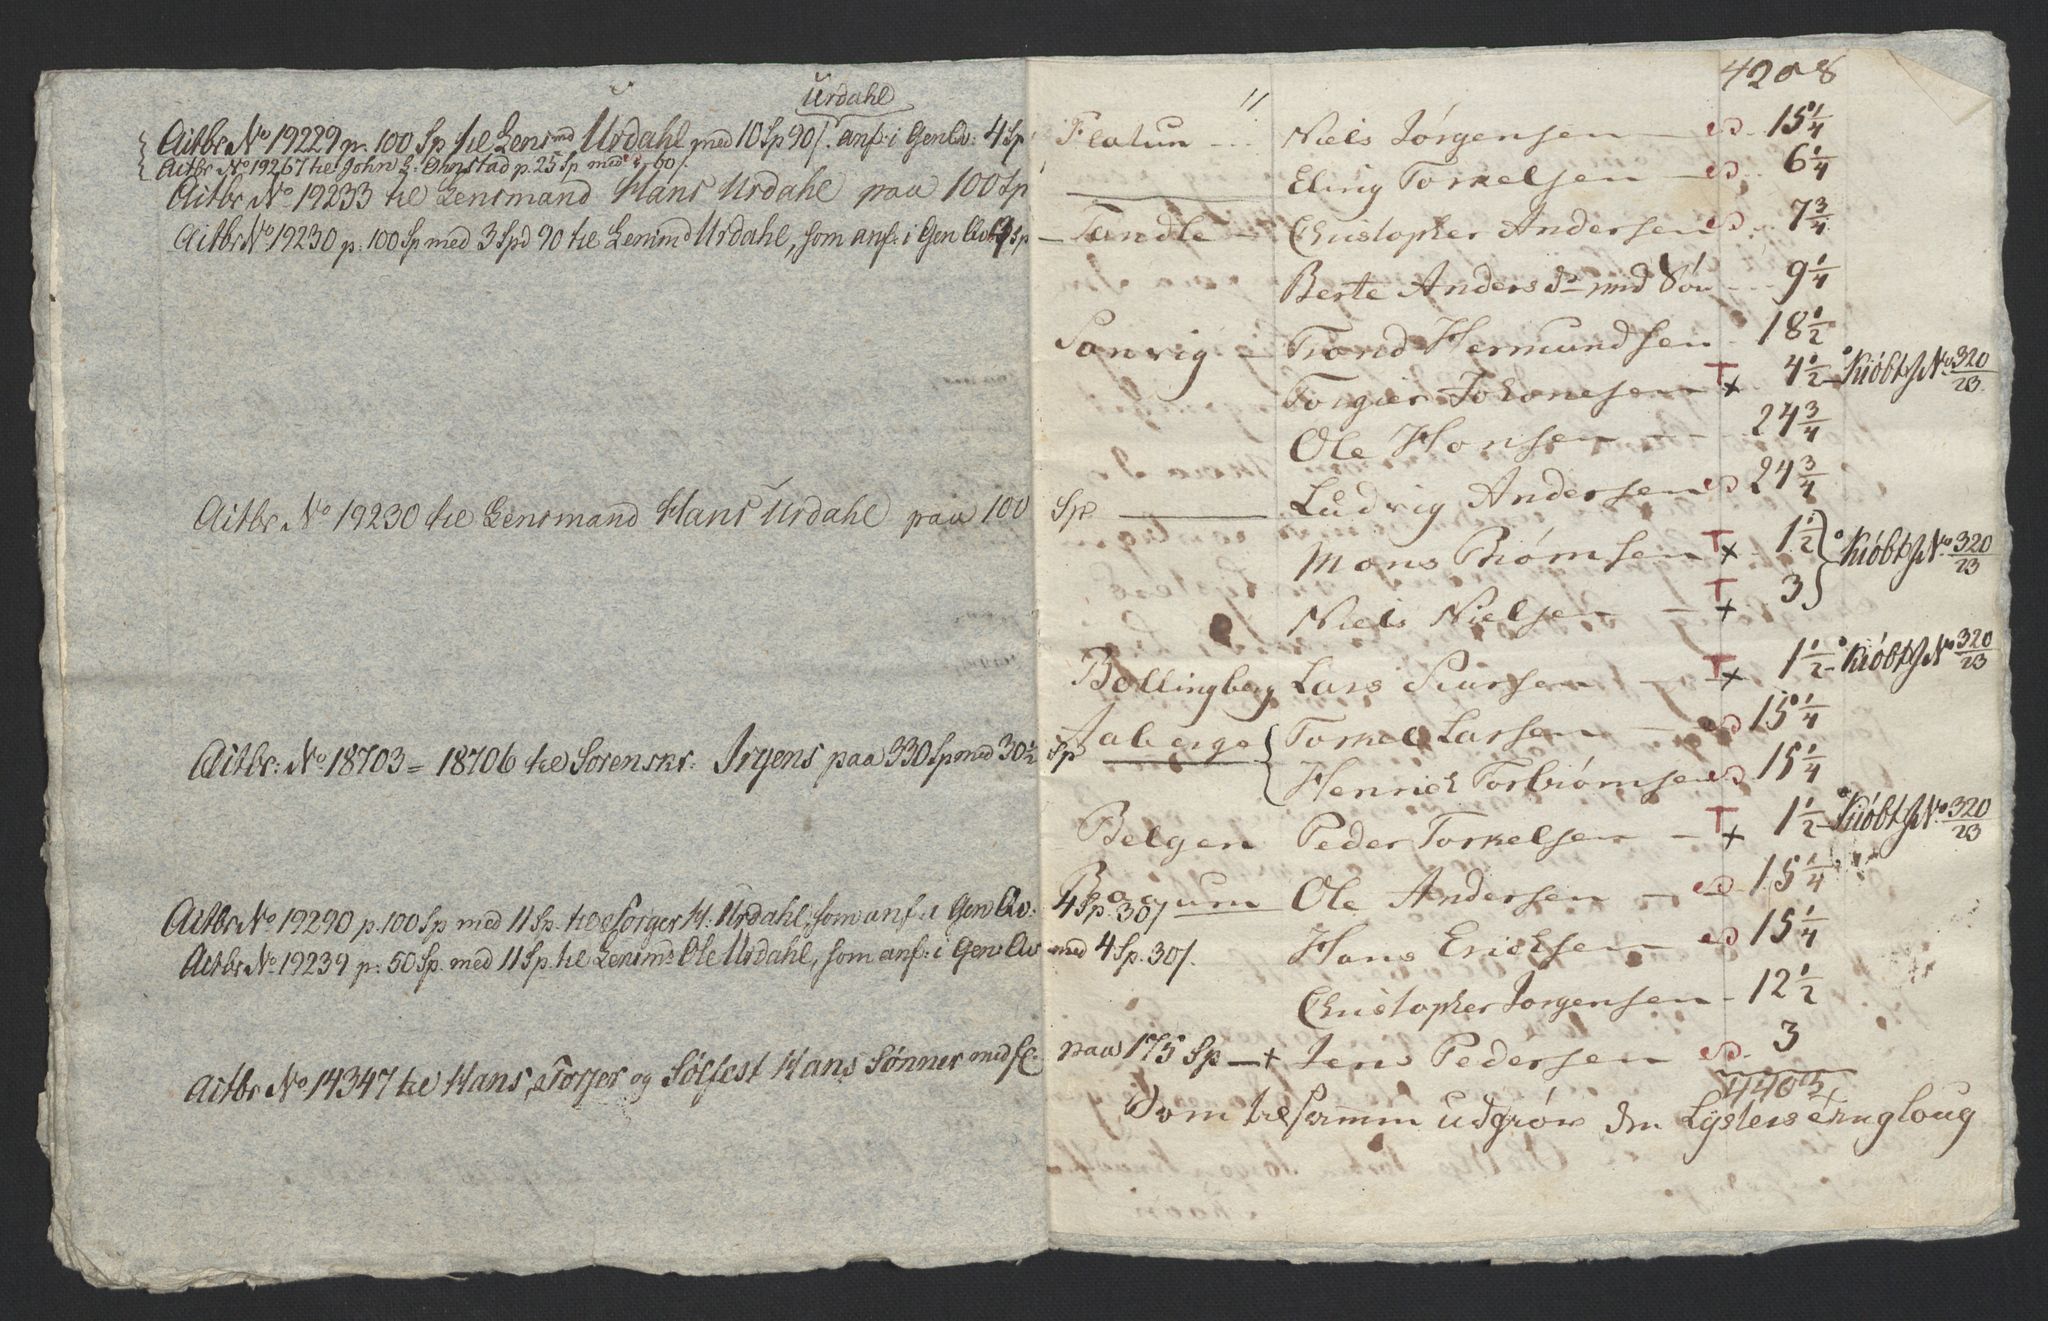 Urdahl
Actbr No 19229 p. 100 Sp til Lensmd Urdahl med 10 Sp 90/. anf: i Gen Qv: 4 Sp
Actbr No 19267 til John L. Ohnstad p. 25 Sp med 60/.
Actbr No 19233 til Lensmand Hans Urdahl paa 100 Sp
Actbr No 19230 p. 100 Sp med 3 Spd 90 til Lensmd Urdahl, som anf: i Gen Qv: Sp
Actbr No 19230 til Lensmand Hans Urdahl paa 100 Sp
Actbr: No 18703 = 18706 til Sorenskr. Irgens paa 330 Sp med 30½ Sp
Actbr No 19290 p. 100 Sp med 11 Sp. til Torger H: Urdahl, som anf: i Gen Qv: 4 Sp. 30/
Actbr No 19239 p: 50 Sp. med 11 Sp. til Lensmd Ole Urdahl, som anf: i Gen Qv med 4 Sp. 30/.
Actbr No 14347 til Hans, Torjer og Sølfest Hans Sønner med fl: paa 175 Sp
4208
Flatun " Niels Jørgensen 15¼
Eling Torkelsen 6¼
Tandle Christopher Andersen 7¾
Berte Andersdr med Søn 9¼
Sanvig Trond Hermundsen 18½
Torgier Johannesen T x 4½ Kiøbt J No 320/23
Ole Hansen 24¾
Ludvig Andersen 24¾
Mons Biørnsen T x 1½ } Kiøbt J No 320/23
Niels Nielsen T x 3
Bollingberg Lars Siursen T x 1½ Kiøbt J No 320/23
Aaberge { Torkel Larsen 15¼
Henrich Torbiørnsen 15¼
Belgen Peder Torkelsen T x 1½ Kiøbt J No 320/23
um Ole Andersen 15¼
Hans Erichsen 15¼
Christopher Jørgensen 12½
+ Jens Pedersen 3
Som tilsamm udgiør den Lysters Tinglaug